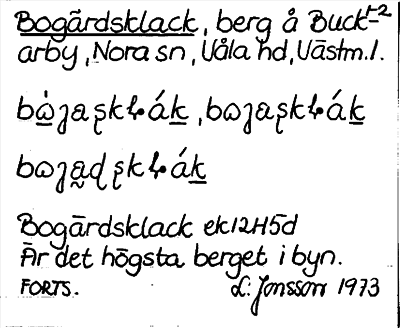 Bogärdsklack, berg å Buck= 1-2
arby, Nora sn, Våla hd, Västm.l.
bω̇ȷaʂkɬák̲, bωȷaʂkɬák̲
bωȷa̰ɖʂkɬák̲
Bogärdsklack ek12H5d
Är det högsta berget i byn.
FORTS. L. Jonsson 1973